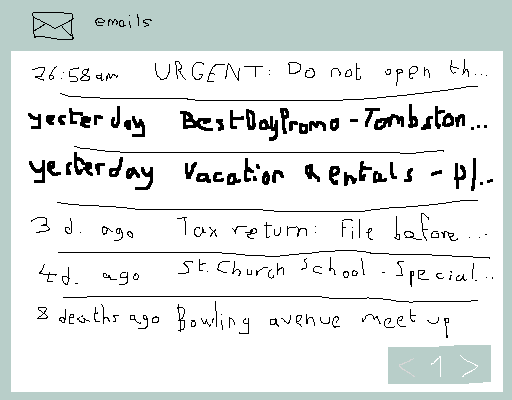 emails
26:58am URGENT: Do not open th...
yesterday BestDayPromo - Tombston...
yesterday Vacation Rentals - pl...
3 d. ago Tax return: File before ...
4d. ago St. Church School - Special...
8 deaths ago Bowling avenue meet up
< 1 >